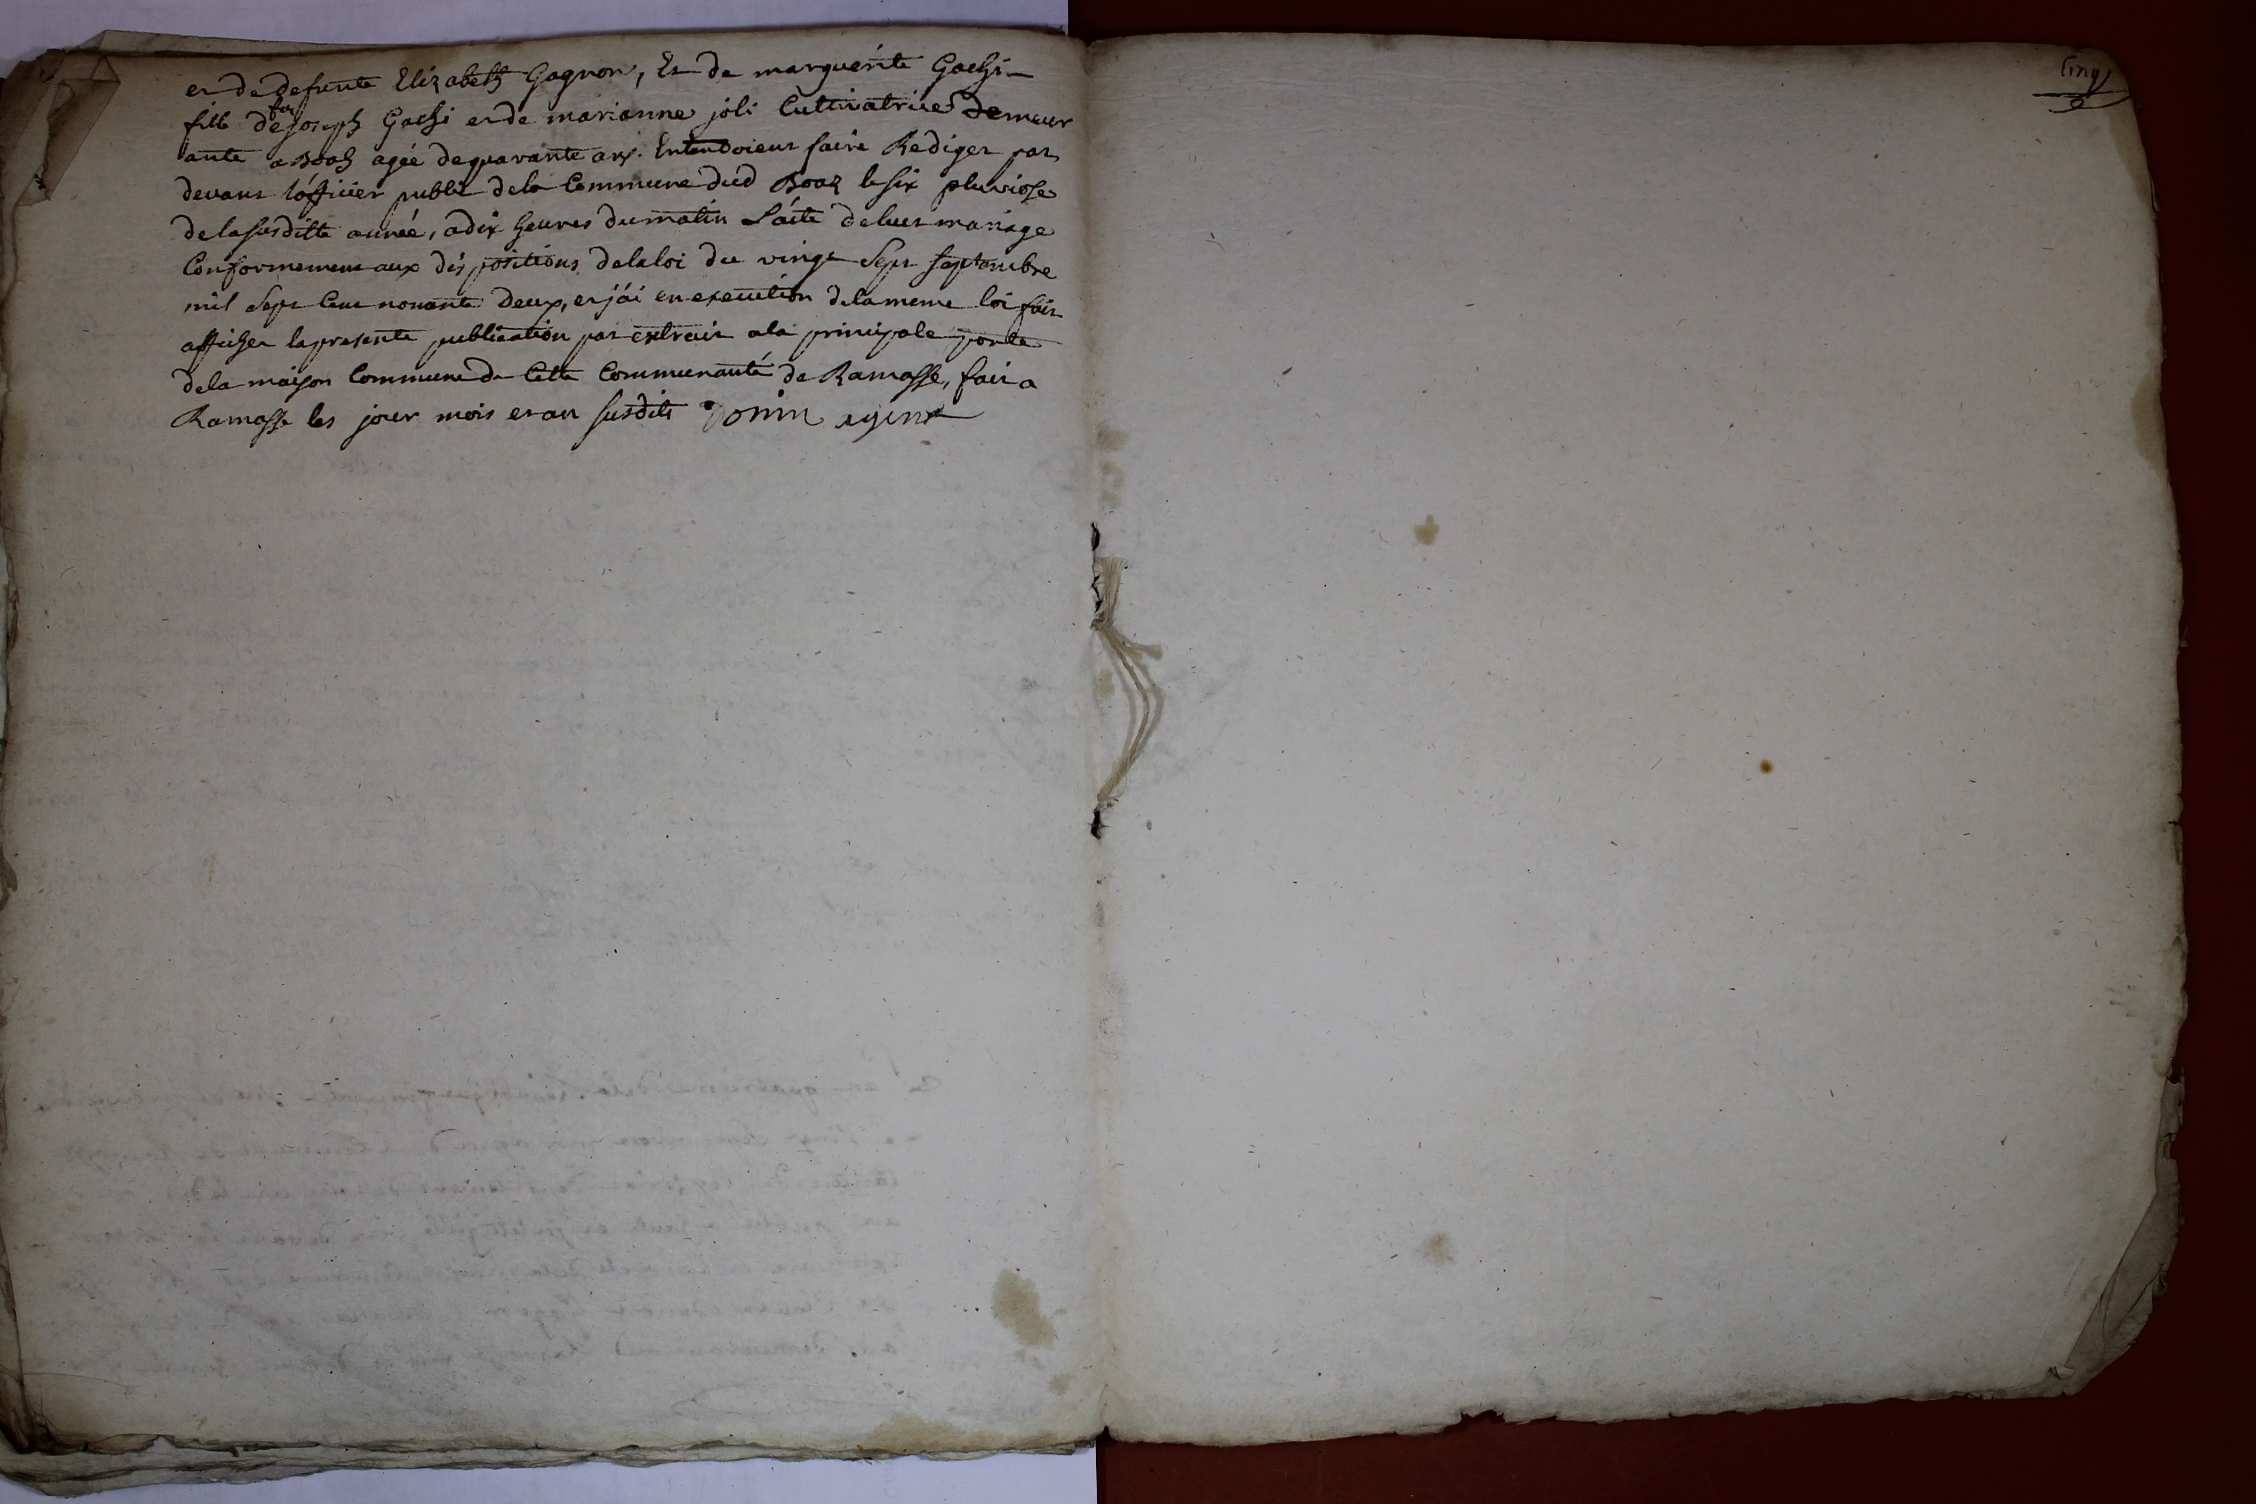 et de defunte Elizabeth Gagnon, Et de marguerite Gachi
fille de feu joseph Gachi et de marianne joli Cultivatrice Demeur
ante a Boaz agée de quarante ans. Entendoient faire Rediger par
devant lófficier public de la Commune dud Boaz le six pluviose
de la susditte année, a dix heures du matin Láite de leur mariage
Conformement aux dispositions de la loi du vingt Sept septembre
mil Sept Cent nonante Deux, et j'ái en execution de la meme loi fait
afficher la presente publication par extrait a la principale porte
de la maison Commune de Cette Communauté de Ramasse, fait a
Ramasse les jour mois et an susdits Donin agent
Cinq